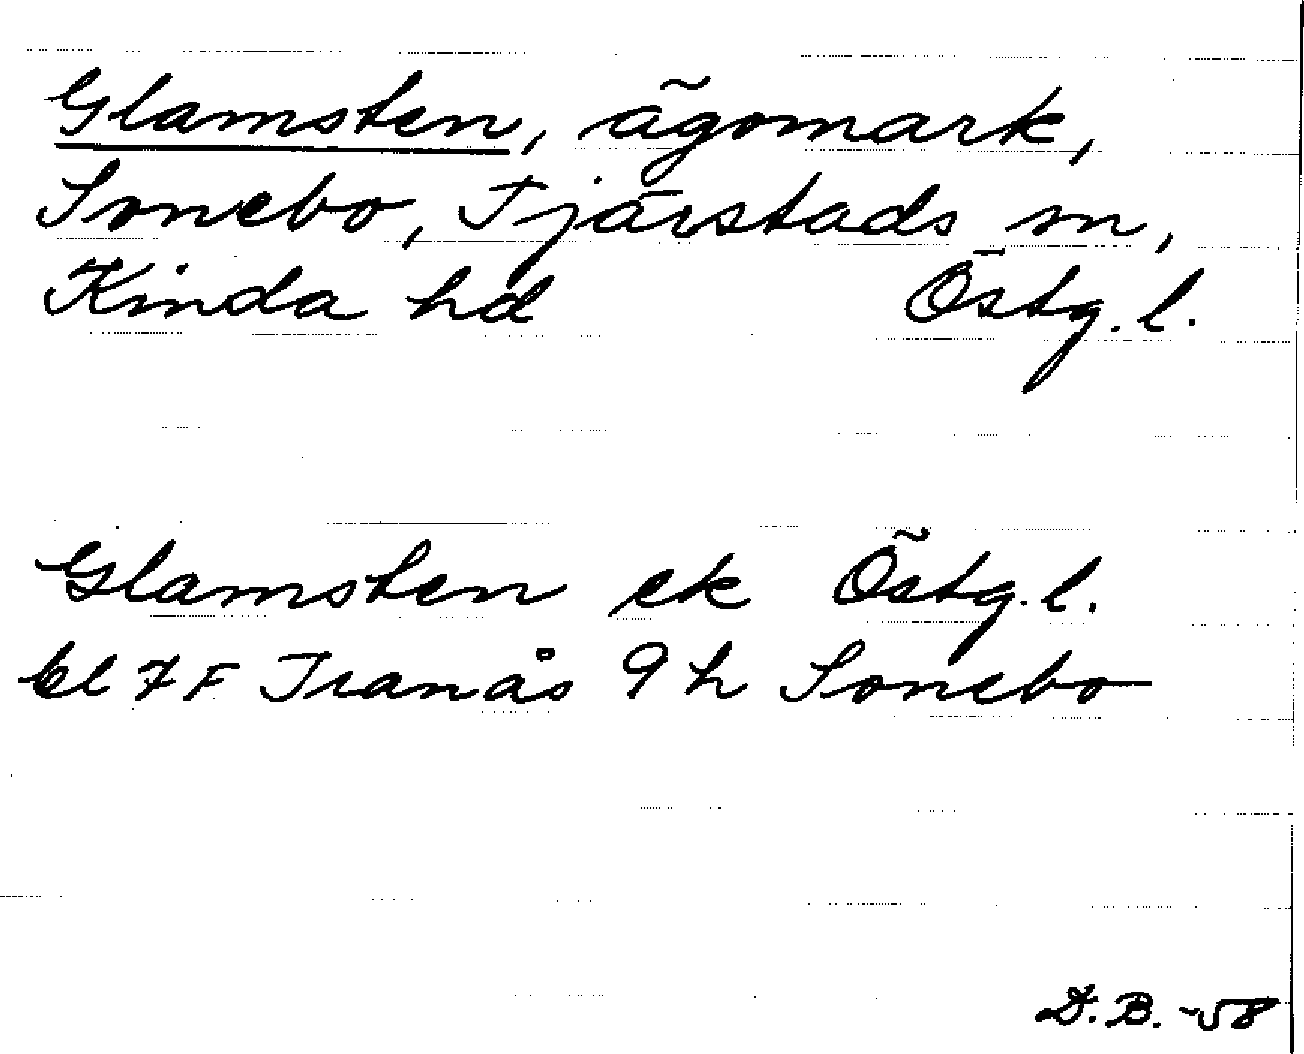 Glamsten, ägomark,
Sonebo, Tjärstads sn,
Kinda hd Östg. l.
Glamsten ek Östg. l.
bl 7 F Tranås 9 h Sonebo
D.B. -58